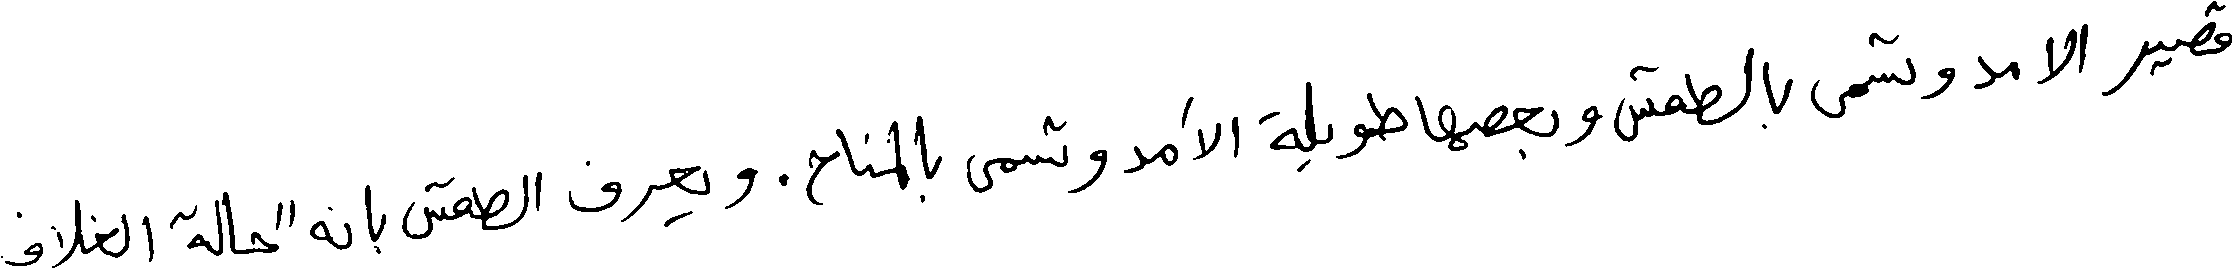 قصير الامد وتسمى بالطقس وبعضها طويلة الأمد وتسمى بالمناخ. ويعرف الطقس بانه "حالة الغلاف